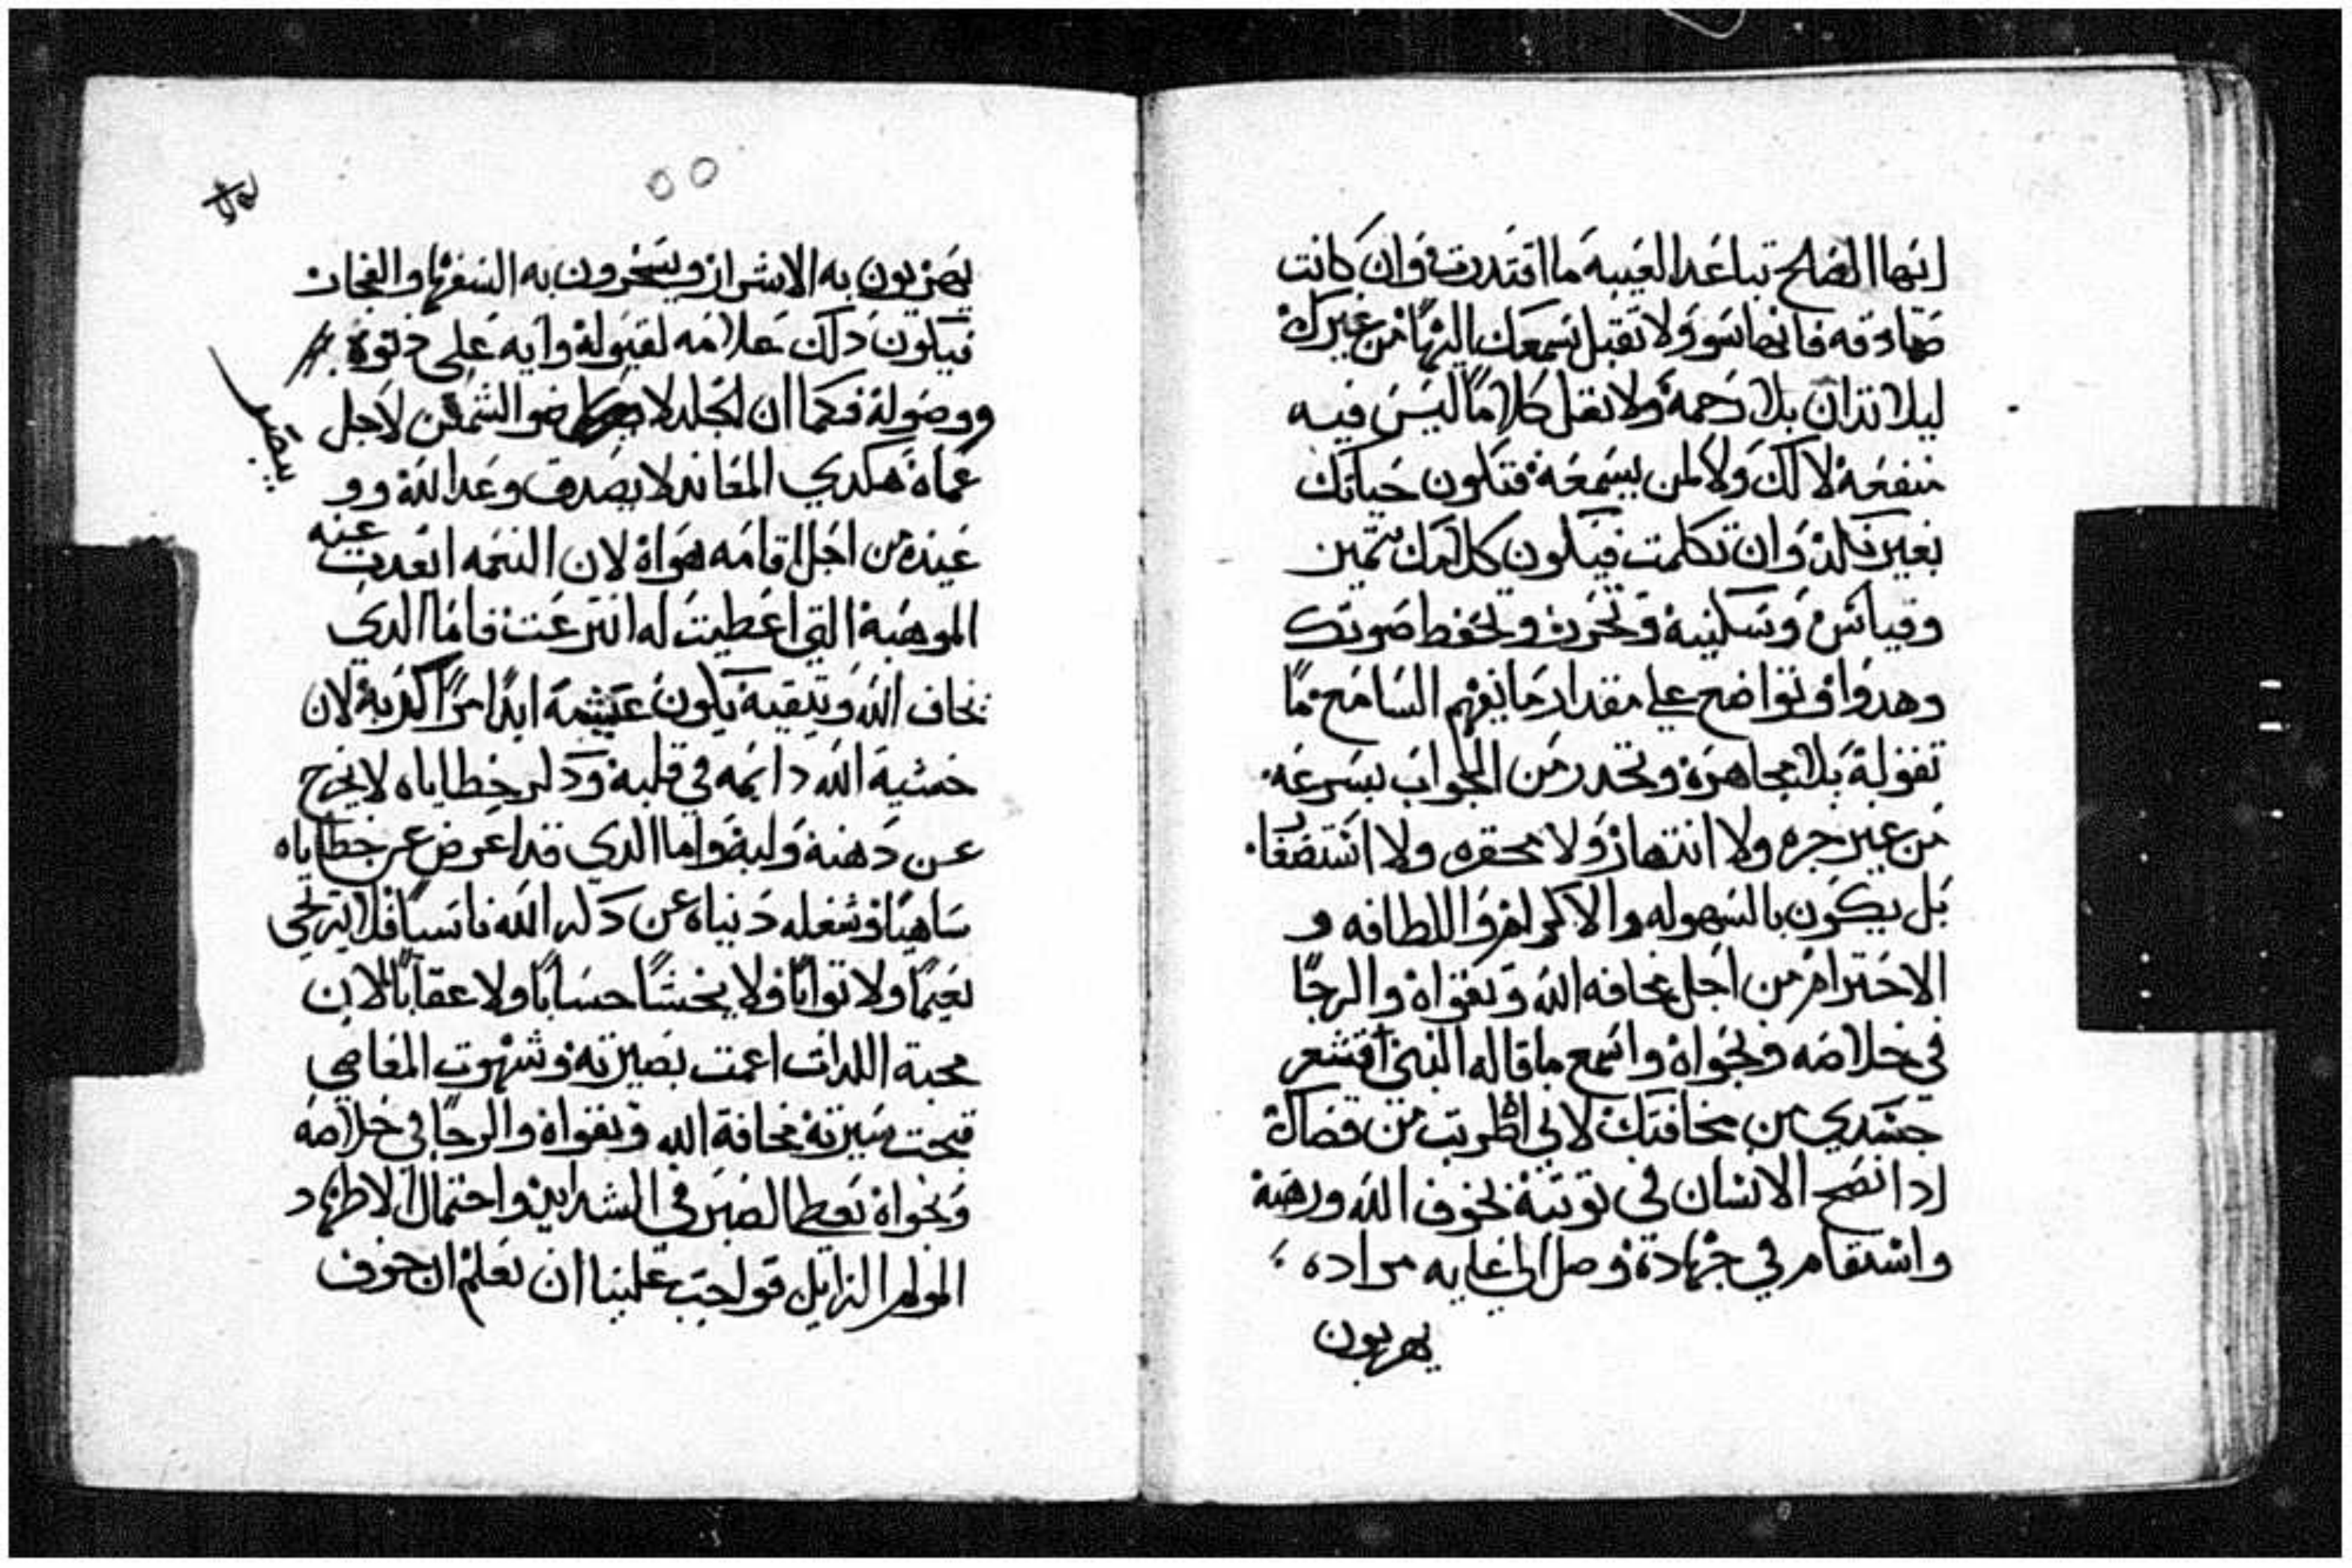 ايها المصلح تباعد الغيبة ما اقتدرت وان كانت
صادقه فانها سو ولا تقبل بسمعك اليها من غيرك
ليلا تدان بلا رحمة ولا تقل كلاماً ليس فيه
منفعة لا لك ولا لمن يسمعة فتكون حياتك
بغير وان تكلمت فيكون كلامك بتمين
وقياس وسكينة وتحرن وتخفط صوتك
وهدوا وتواضع على مقدار ما يفهم السامع ما
تقولة بلا مجاهرة وتحدر من الجواب بسرعه
من غير جره ولا انتهاز ولا محقره ولا استضغا
بل يكون بالسهوله والاكرام واللطافه و
الاحترام من اجل مخافه الله وتقواة والرجا
في خلاصه ونجواة واسمع ما قاله النبي اقشعر
جسدي من مخافتك لاني اظربت من قضاك
ادا نصح الانسان في توبتة بخوف الله ورهبة
واستقام في جهادة وصل الي غايه مراده
يهربون
يضربون به الاشرار ويسخرون به السفها والفجار
فيكون دلك علامه لقبولة وايه على دنوة
ووصولة فكما ان الخلد لا ضو الشمس لاجل
ينظر
عماة هكدي المعاند لا يصدق وعد الله وو
عيدة من اجل اقامه هواة لان النعمه ابعدت عنه
الموهبة التي اعطيت له انترعت فاما الدي
يخاف الله ويتقية يكون عيشة ابداً مراً كدبة لان
خشية الله دايمه في قلبة ودكر خطاياه لا يخرج
عن دهنة ولبة واما الدي قد اعرض عن خطاياه
ساهياً وشغله دنياه عن دكر الله ناسيا فلا يترجي
نعيماً ولا تواباً ولا يخشا حساباً ولا عقاباً لان
محبة اللدات اعمت بصيرته وشهوت المعاصي
قبحت سيرتة مخافة الله وتقواة والرجا في خلاصه
ونجواة تعطا الصبر في الشدايد واحتمال الاطهاد
المولم الزايل فواجب علينا ان نعلم ان خوف